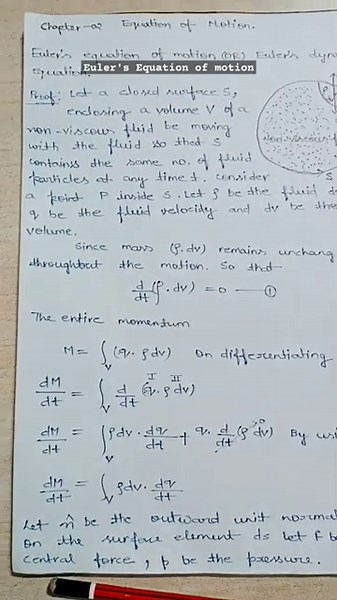 Chapter-02 Equation of Motion.
Euler's equation of motion (OR) Euler's dyn
Equation
Euler's Equation of motion
Proof: Let a closed surface S,
enclosing a volume V of a
non-viscous fluid be moving
with the fluid so that S
contains the same no. of fluid
particles at any time t. consider
a point P inside S. Let ρ be the fluid d
q be the fluid velocity and dv be the
volume.
Since mass (ρ.dv) remains unchang
throughout the motion. So that
d/dt (ρ.dv) = 0 — ①
The entire momentum
M = ∫_V (q.ρdv) On differentiating
dM/dt = ∫_V d/dt (q.ρdv)
I II
dM/dt = ∫_V ρdv.dq/dt + q.d/dt(ρdv) By usi
→0
dM/dt = ∫_V ρdv.dq/dt
Let n̂ be the outward unit normal
on the surface element ds let F b
central force, p be the pressure.
P
non-viscous f
S